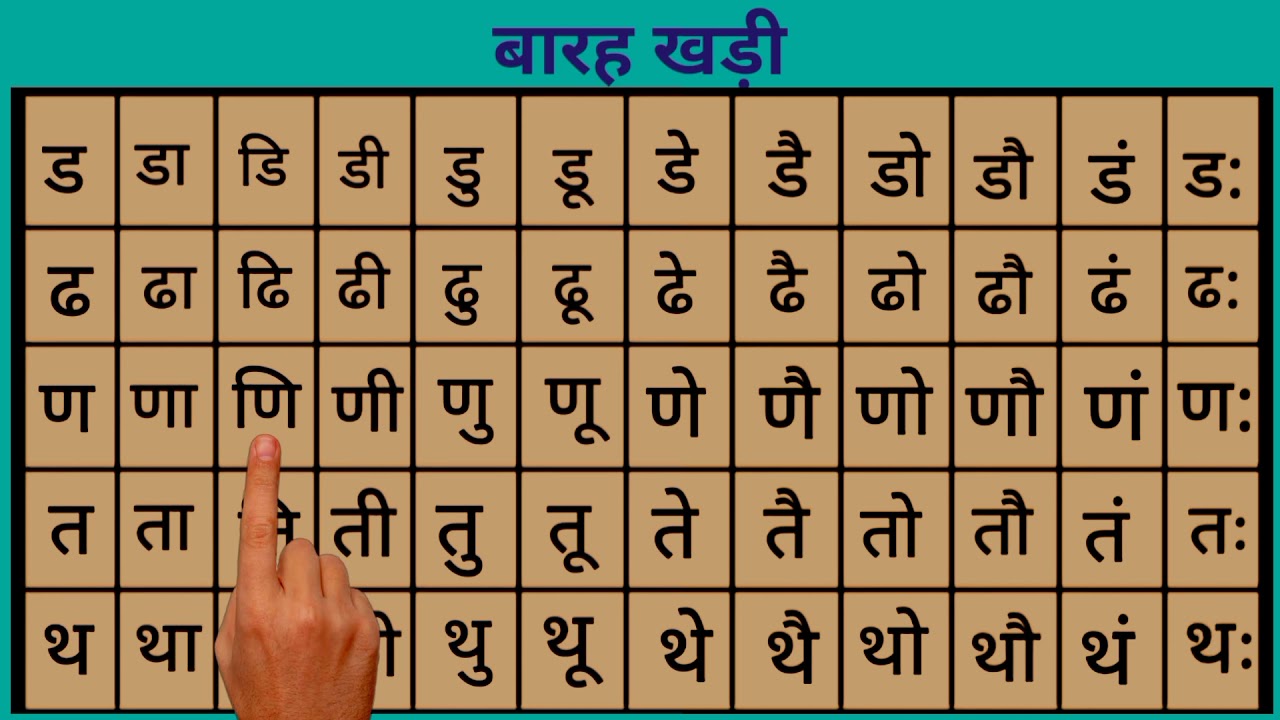 बारह खड़ी
ड डा डि डी डु डू डे डै डो डौ डं ड:
ढ ढा ढि ढी ढु ढू ढे ढै ढो ढौ ढं ढ:
ण णा णि णी णु णू णे णै णो णौ णं ण:
त ता ती तु तू ते तै तो तौ तं त:
थ था थु थू थे थै थो थौ थं थ: